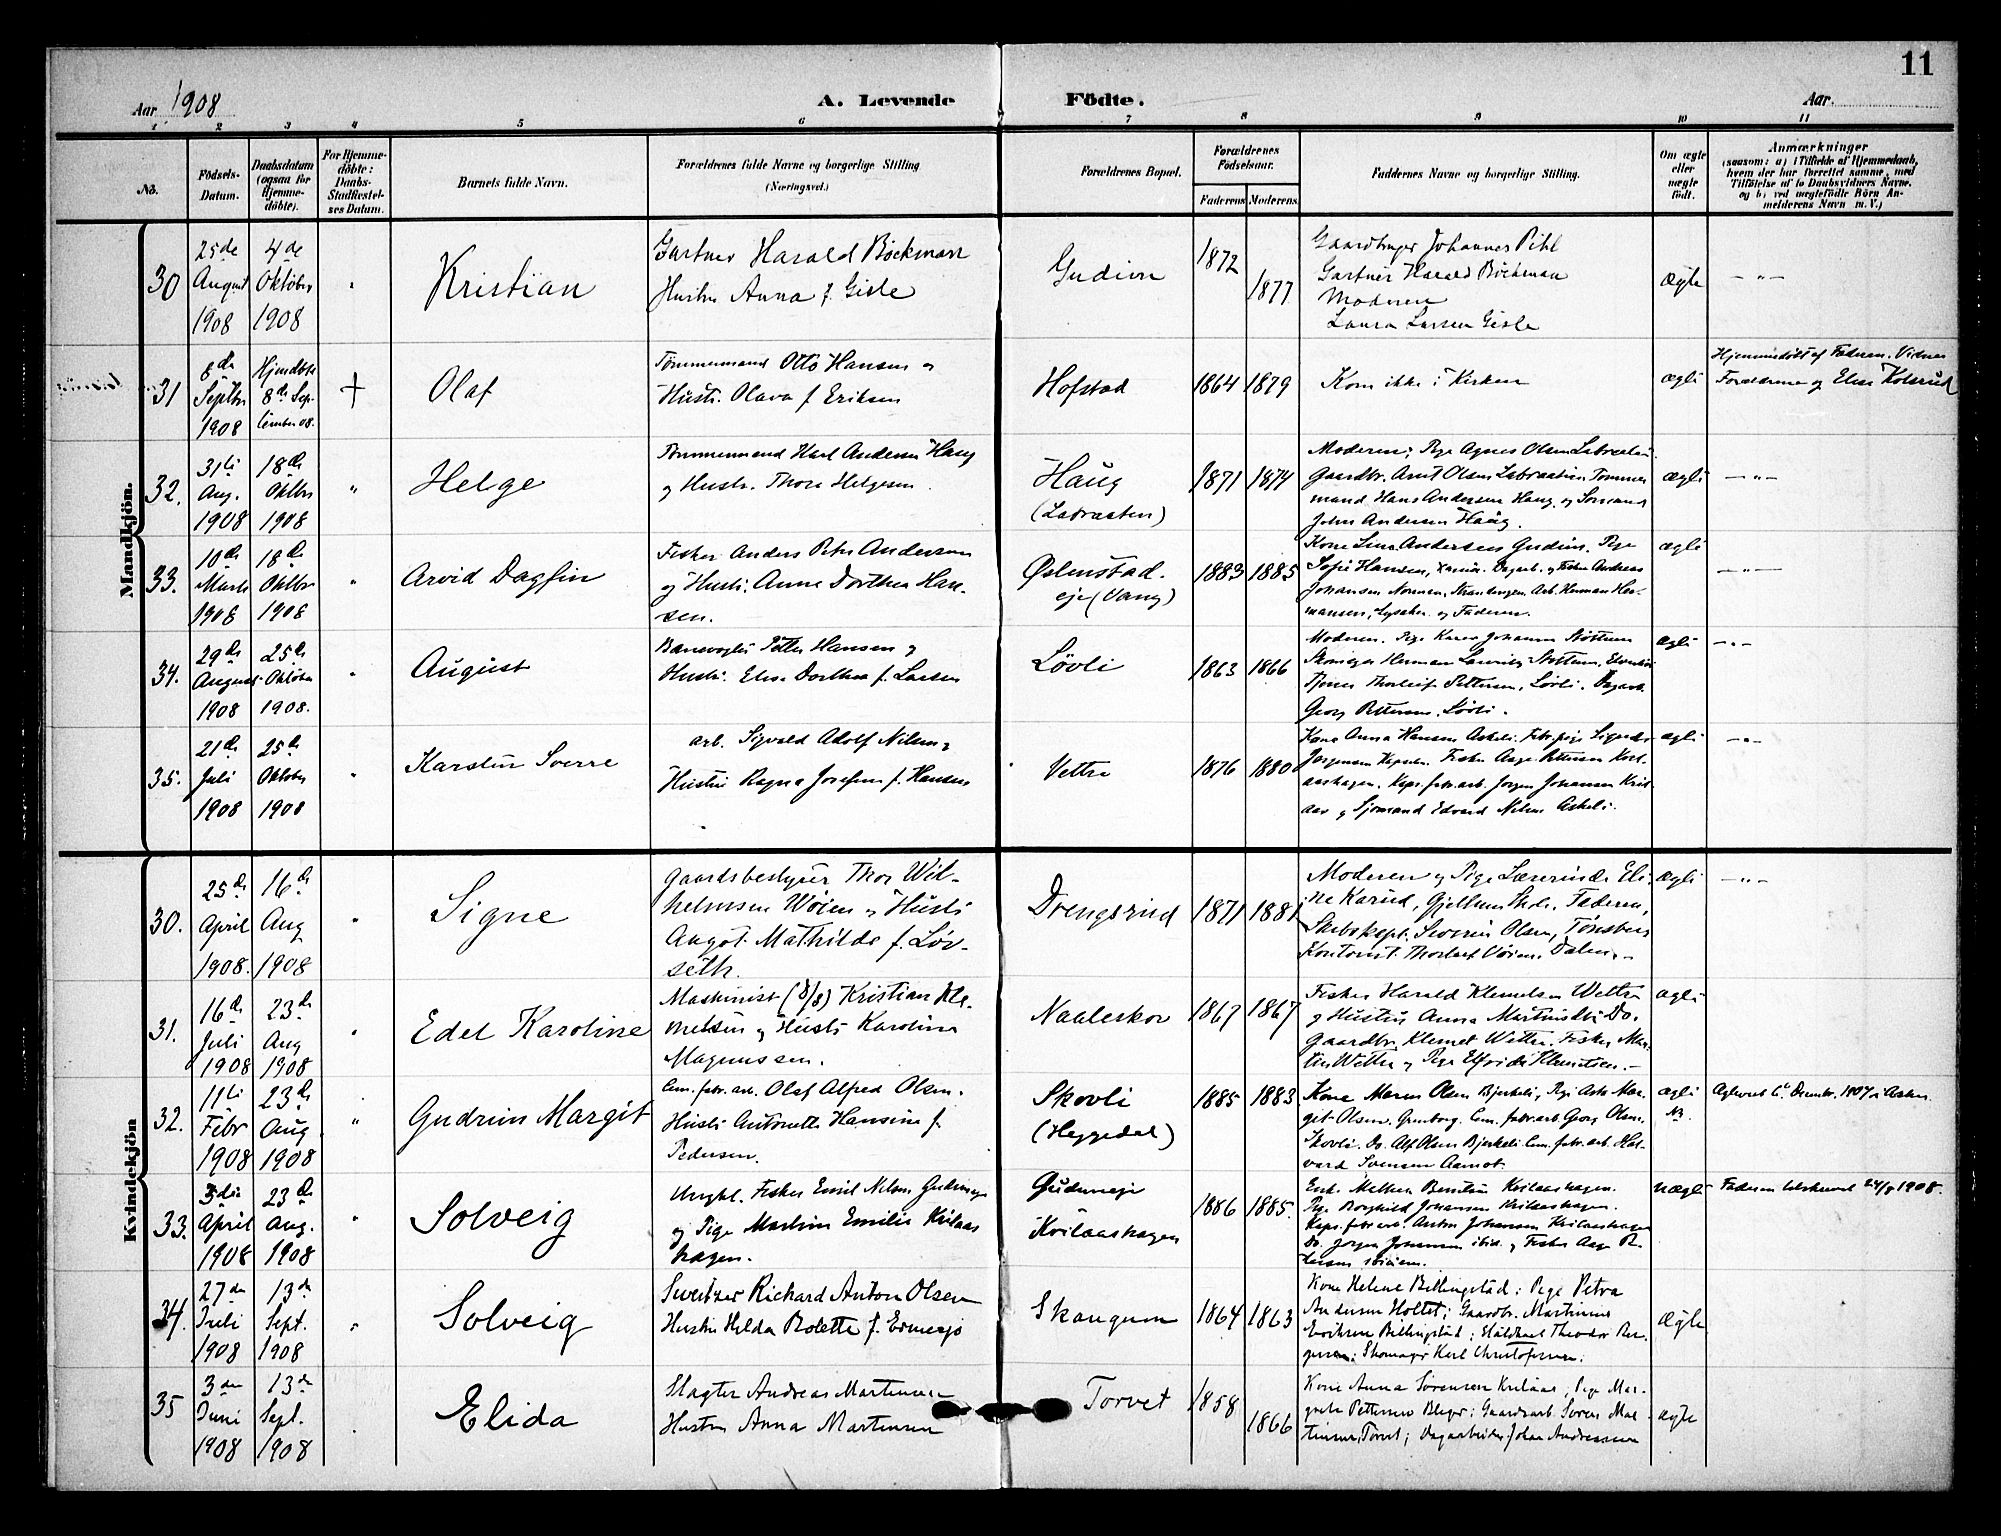 11
Aar 1908
A. Levende Födte.
Aar.
1 2 3 4 5 6 7 8 9 10 11
No.
Födsels-Datum.
Daabsdatum (ogsaa for Hjemme-döbte).
For Hjemme-döbte: Daabs-Stadfæstel-ses Datum.
Barnets fulde Navn.
Forældrenes fulde Navne og borgerlige Stilling (Næringsvei.)
Forældrenes Bopæl.
Forældrenes Födselsaar.
Faderens Moderens
Faddernes Navne og borgerlige Stilling.
Om ægte eller uægte födt.
Anmærkninger
(saasom: a) i Tilfælde af Hjemmedaab,
hvem der har forrettet samme, med
Tilföielse af to Daabsvidners Navne.
og b) ved uægtefödte Börn An-
melderens Navn m. V.)
Mandkjön.
30
25de August 1908
4de Oktober 1908
Kristian
Gartner Harald Böckman
Hustru Anna f. Gisle
Gudim
1872
1877
Gaardbruger Johannes Pihl
Gartner Harald Böckman
Moderen
Laura Larsen Gisle
Ægte
— " —
31
8de Septbr 1908
Hjemdöbt 8de September 08.
+
Olaf
Tømmermand Otto Hansen og
Hustr. Olava f. Eriksen
Hofstad
1864 1879
Kom ikke i Kirken
ægte
Hjemmedöbt af Faderen. Vidner
Forældrene og Elise Kolsrud
32.
31te Aug. 1908
18de Oktbr 1908
"
Helge
Tømmermand Karl Andersen Haug
og Hustr. Thora Helgesen
Haug
(Labraaten)
1871 1874
Moderen; Pige Agnes Olsen Labraaten
Gaardbr. Anut Olsen Labraaten Tømmer
mand Hans Andersen Haug og Sömand
John Andersen Haug.
ægte
— " —
33.
10de Marts 1908
18de Oktbr 1908
"
Arvid Dagfin
Fisker Anders Peter Andersen
og Hustr. Anne Dorthea Han-
sen.
Østenstad.
eje (Vang)
1883 1885
Kone Lina Andersen Gudim. Pige
Sofie Hansen, Dagarb. og Fisker Andreas
Johansen Strandengen Arb. Herman Her-
mansen, Lysaker og Faderen.
ægte
— " —
34.
29de August 1908
25de Oktober 1908.
"
August
Banevogter Petter Hansen og
Hustr. Elise Dorthea f. Larsen
Lövli
1863 1866
Moderen. Pige Karen Johanne Støttum
Skomager Herman Støttum,
Tjener Thorleif Pettersen, Lövli. Dagarb.
Georg Pettersen, Lövli.
ægte
— " —
35.
21de Juli 1908
25de Oktober 1908
"
Karsten Sverre
arb. Sigvald Adolf Nilsen og
Hustru Ragna Josefine f. Hansen
Vettre
1876 1880
Kone Anna Hansen Askeli. Fabr.pige Signe
Jørgensen Fisker Aage Pettersen Kvil-
aashagen. Kaps.fabr.arb. Jørgen Johansen Kvil-
aas og Sjömand Edvard Nilsen Askeli.
ægte
— " —
Kvindekjön
30.
25de April 1908.
16de Aug 1908
"
Signe
Gaardsbestyrer Thor Wil-
helmsen Wöien og Hustr.
Angot Mathilde f. Löv-
seth.
Drengsrud
1871 1881
Moderen og Pige Lærerinde Eli-
ne Karud, Gjellum Skole, Faderen,
Skibskapt. Severin Olsen, Tönsberg
Kontorist Thorleif Vöien, Dalen.
ægte
— " —
31.
16de Juli 1908
23de Aug 1908
"
Edel Karoline
Maskinist (d/s) Kristian Kle-
metsen og Hustr. Karoline
Magnussen.
Naaleskov
1867 1867
Fisker Harald Klemetsen Wettre
og Hustru Anna Do.
Gaardbr. Klemet Wettre. Fisker Mar-
tin Wettre og Pige Elfrida Klemetsen.—
ægte
32.
11te Febr 1908
23de Aug. 1908
"
Gudrun Margit
Cem.fabr.arb. Olaf Alfred Olsen.
Hustr. Antonette Hansine f.
Pedersen.
Skovli
(Heggedal)
1885 1883
Kone Maren Olsen Bjerkeli, Pige Asta Mar-
get Olsen, Cem.fabr.arb. Georg Olsen,
Skovli. Do. Alf Olsen Bjerkeli Cem.fabr.arb. Hal-
vard Svensen Aamot.
ægte
NB.
Ægteviet Decembr. 1907 i Asker
33.
3die April 1908
23de Aug. 1908
"
Solveig
Ungkl. Fisker Emil Nilsen Gudimeje
og Pige Martine Emilie Kvilaas
hagen.
Gudimeje
Kvilaashagen
1886 1885.
Enke Mathea Berntsen Kvilaashagen.
Pige Borghild Johansen Kvilaashagen.
Kaps.fabr.arb. Anton Johansen Kvilaashagen
Do. Jørgen Johansen ibid. og Fisker Aage Pe-
tersen ibidem.
uægte
Faderen udskrevet 24/8 1908.
34.
27de Juli 1908
13de Sept. 1908
"
Solveig
Sveitzer Richard Anton Olsen
Hustru Hylda Bolette f. Ermesjö
Skaugum
1864 1863
Kone Helene Billingstad; Pige Petra
Andersen Holtet; Gaardbr. Martinius
Eriksen Billingstad; Staldkarl Theodor Ber-
gersen; Skomager Karl Christofersen.
Ægte
35
3de Juni 1908
13de Sept. 1908
Elida
Slagter Andreas Martinsen
Hustru Anna Martinsen
Torvet
1858
1866
Kone Anna Sörensen Kvilaas, Pige Mar-
grete Pettersen Gaardsarb. Sören Mar-
tinsen, Torvet; Dagarbeider Johan Andreassen
ægte